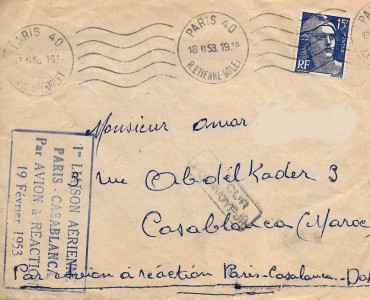 PARIS 40
R. ETIENNE DOLET
PARIS 40
18 II 53. 19
R. ETIENNE DOLET
15F
RF
Monsieur Omar
rue Abdel Kader 3
Casablanca (Maroc
Par avion à réaction Paris-Casablanca-Da
1re LIAISON AERIENNE
PARIS-CASABLANCA
Par AVION à REACTION
19 Février 1953